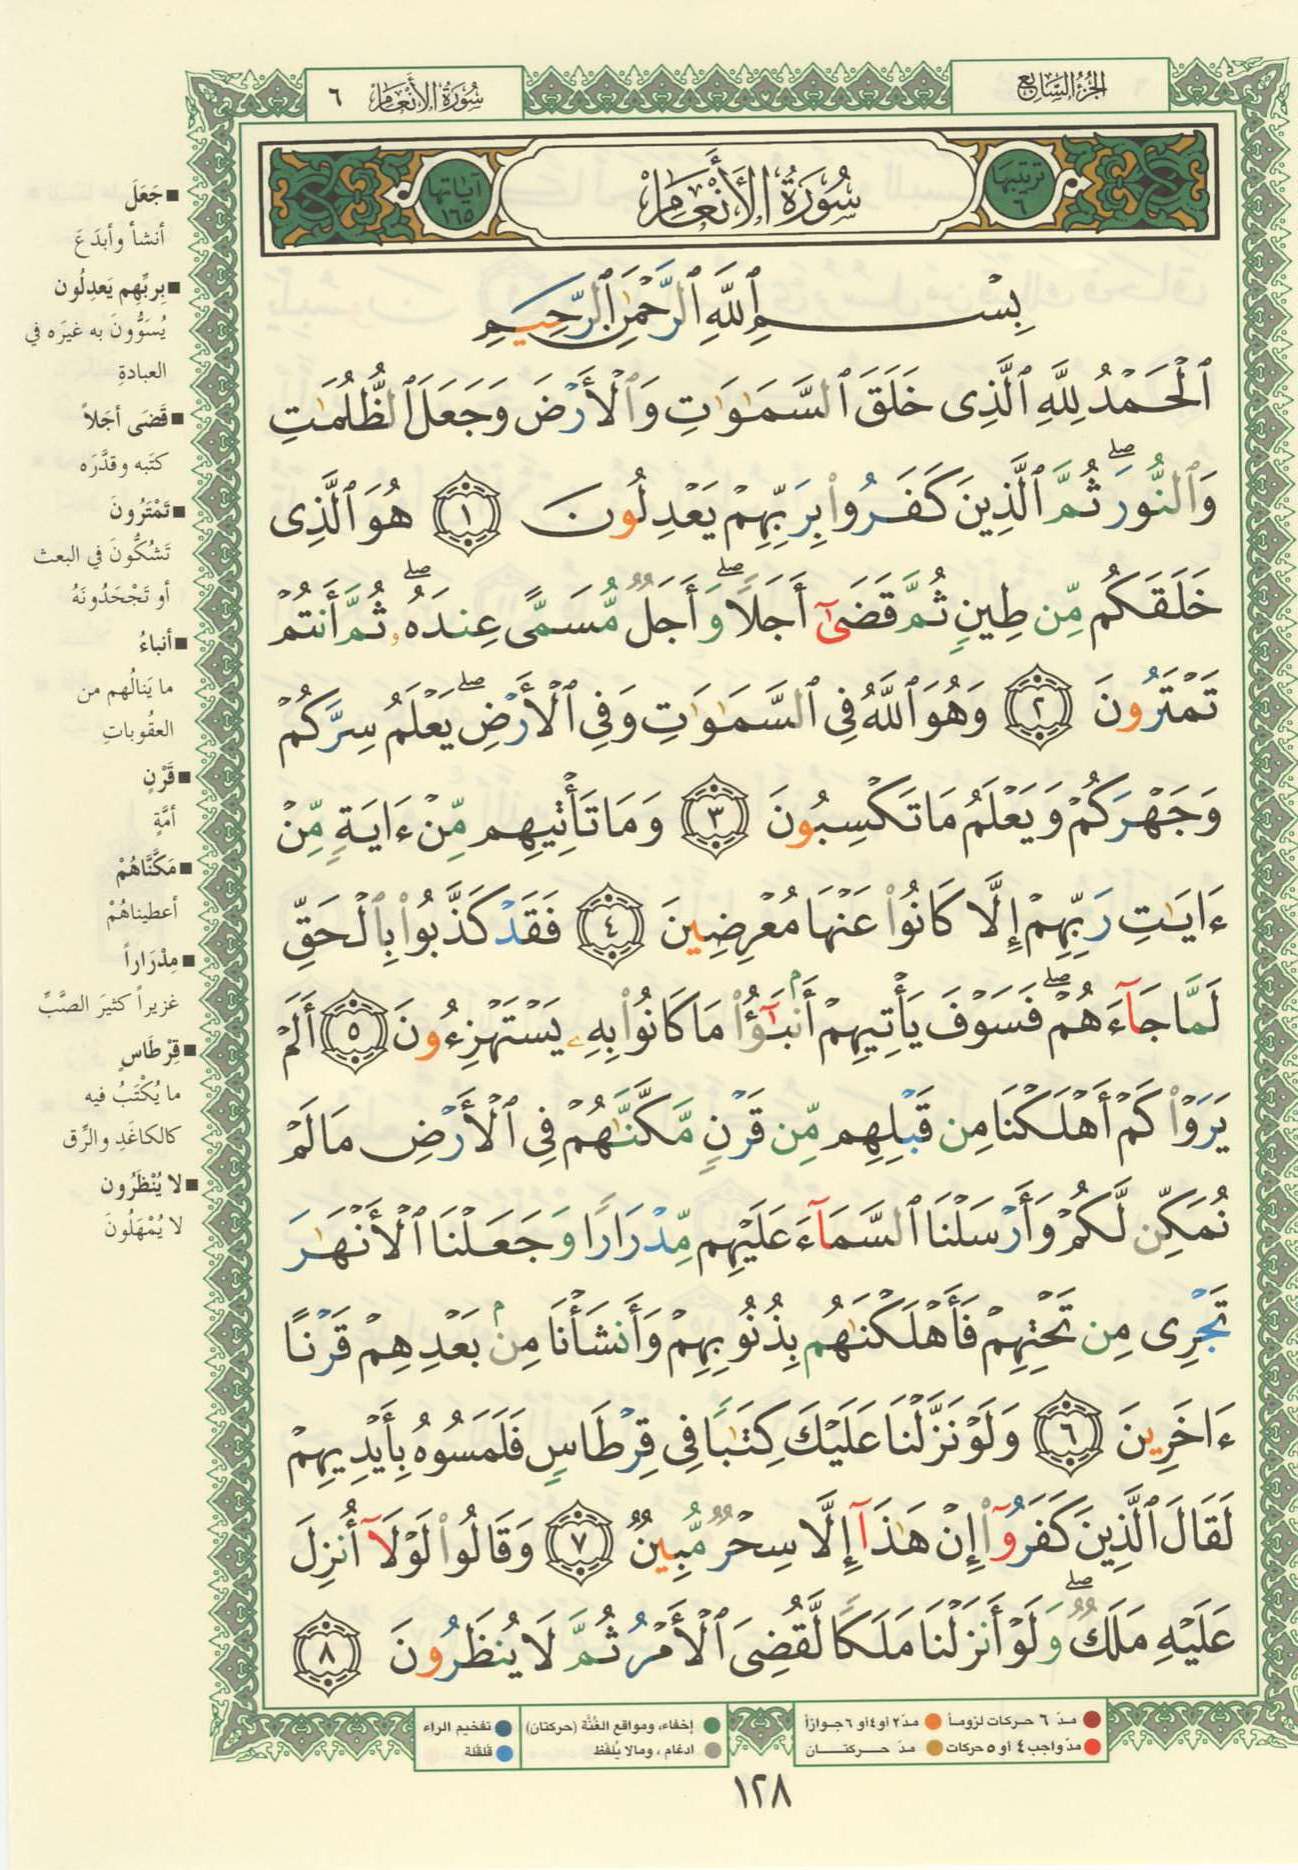 الجزء السابع
سورة الأنعام ٦
ترتيبها ٦
سُورَةُ الأَنْعَامِ
آياتها ١٦٥
بِسْمِ ٱللَّهِ ٱلرَّحْمَٰنِ ٱلرَّحِيمِ
ٱلْحَمْدُ لِلَّهِ ٱلَّذِى خَلَقَ ٱلسَّمَٰوَٰتِ وَٱلْأَرْضَ وَجَعَلَ ٱلظُّلُمَٰتِ
وَٱلنُّورَ ۖ ثُمَّ ٱلَّذِينَ كَفَرُوا۟ بِرَبِّهِمْ يَعْدِلُونَ ١ هُوَ ٱلَّذِى
خَلَقَكُم مِّن طِينٍ ثُمَّ قَضَىٰٓ أَجَلًا ۖ وَأَجَلٌ مُّسَمًّى عِندَهُۥ ۖ ثُمَّ أَنتُمْ
تَمْتَرُونَ ٢ وَهُوَ ٱللَّهُ فِى ٱلسَّمَٰوَٰتِ وَفِى ٱلْأَرْضِ ۖ يَعْلَمُ سِرَّكُمْ
وَجَهْرَكُمْ وَيَعْلَمُ مَا تَكْسِبُونَ ٣ وَمَا تَأْتِيهِم مِّنْ ءَايَةٍ مِّنْ
ءَايَٰتِ رَبِّهِمْ إِلَّا كَانُوا۟ عَنْهَا مُعْرِضِينَ ٤ فَقَدْ كَذَّبُوا۟ بِٱلْحَقِّ
لَمَّا جَآءَهُمْ ۖ فَسَوْفَ يَأْتِيهِمْ أَنۢبَٰٓؤُا۟ مَا كَانُوا۟ بِهِۦ يَسْتَهْزِءُونَ ٥ أَلَمْ
يَرَوْا۟ كَمْ أَهْلَكْنَا مِن قَبْلِهِم مِّن قَرْنٍ مَّكَّنَّٰهُمْ فِى ٱلْأَرْضِ مَا لَمْ
نُمَكِّن لَّكُمْ وَأَرْسَلْنَا ٱلسَّمَآءَ عَلَيْهِم مِّدْرَارًا وَجَعَلْنَا ٱلْأَنْهَٰرَ
تَجْرِى مِن تَحْتِهِمْ فَأَهْلَكْنَٰهُم بِذُنُوبِهِمْ وَأَنشَأْنَا مِنۢ بَعْدِهِمْ قَرْنًا
ءَاخَرِينَ ٦ وَلَوْ نَزَّلْنَا عَلَيْكَ كِتَٰبًا فِى قِرْطَاسٍ فَلَمَسُوهُ بِأَيْدِيهِمْ
لَقَالَ ٱلَّذِينَ كَفَرُوٓا۟ إِنْ هَٰذَآ إِلَّا سِحْرٌ مُّبِينٌ ٧ وَقَالُوا۟ لَوْلَآ أُنزِلَ
عَلَيْهِ مَلَكٌ ۖ وَلَوْ أَنزَلْنَا مَلَكًا لَّقُضِىَ ٱلْأَمْرُ ثُمَّ لَا يُنظَرُونَ ٨
■ جَعَلَ
أنشأ وأبدَعَ
■ بِربِّهِم يَعدِلُون
يُسَوُّونَ به غيرَه في
العبادةِ
■ قَضَى أجَلاً
كتَبه وقدَّرَه
■ تَمْتَرُونَ
تَشُكُّونَ في البعث
أو تَجْحَدُونَهُ
■ أنباءُ
ما يَنالُهم من
العقُوباتِ
■ قَرْنٍ
أمَّةٍ
■ مَكَّنَّاهُمْ
أعطيناهُمْ
■ مِدْرَاراً
غزيراً كثيرَ الصَّبِّ
■ قِرْطَاسٍ
ما يُكْتَبُ فيه
كالكاغَدِ والرِّق
■ لا يُنْظَرُون
لا يُمْهَلُونَ
مدّ ٦ حركات لزوماً مدّ ٢ أو ٤ أو ٦ جوازاً
مدّ واجب ٤ أو ٥ حركات مدّ حركتان
إخفاء، ومواقع الغُنَّة (حركتان)
ادغام ، ومالا يُلفَظ
تفخيم الراء
قلقلة
١٢٨